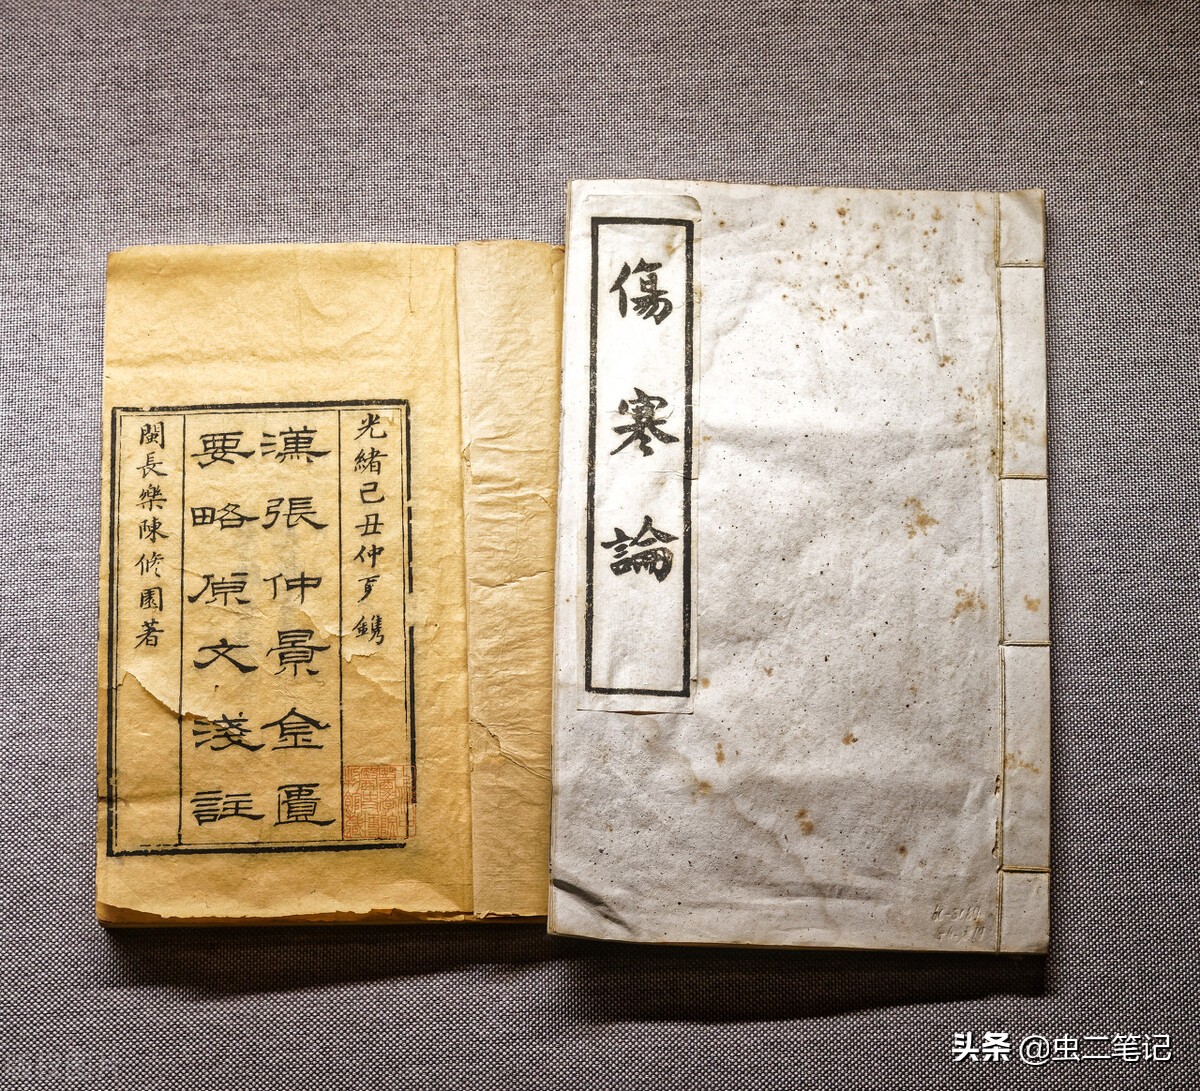 傷寒論
光緒己丑仲夏鐫
漢張仲景金匱
要略原文淺註
閩長樂陳修園著
头条 @虫二笔记